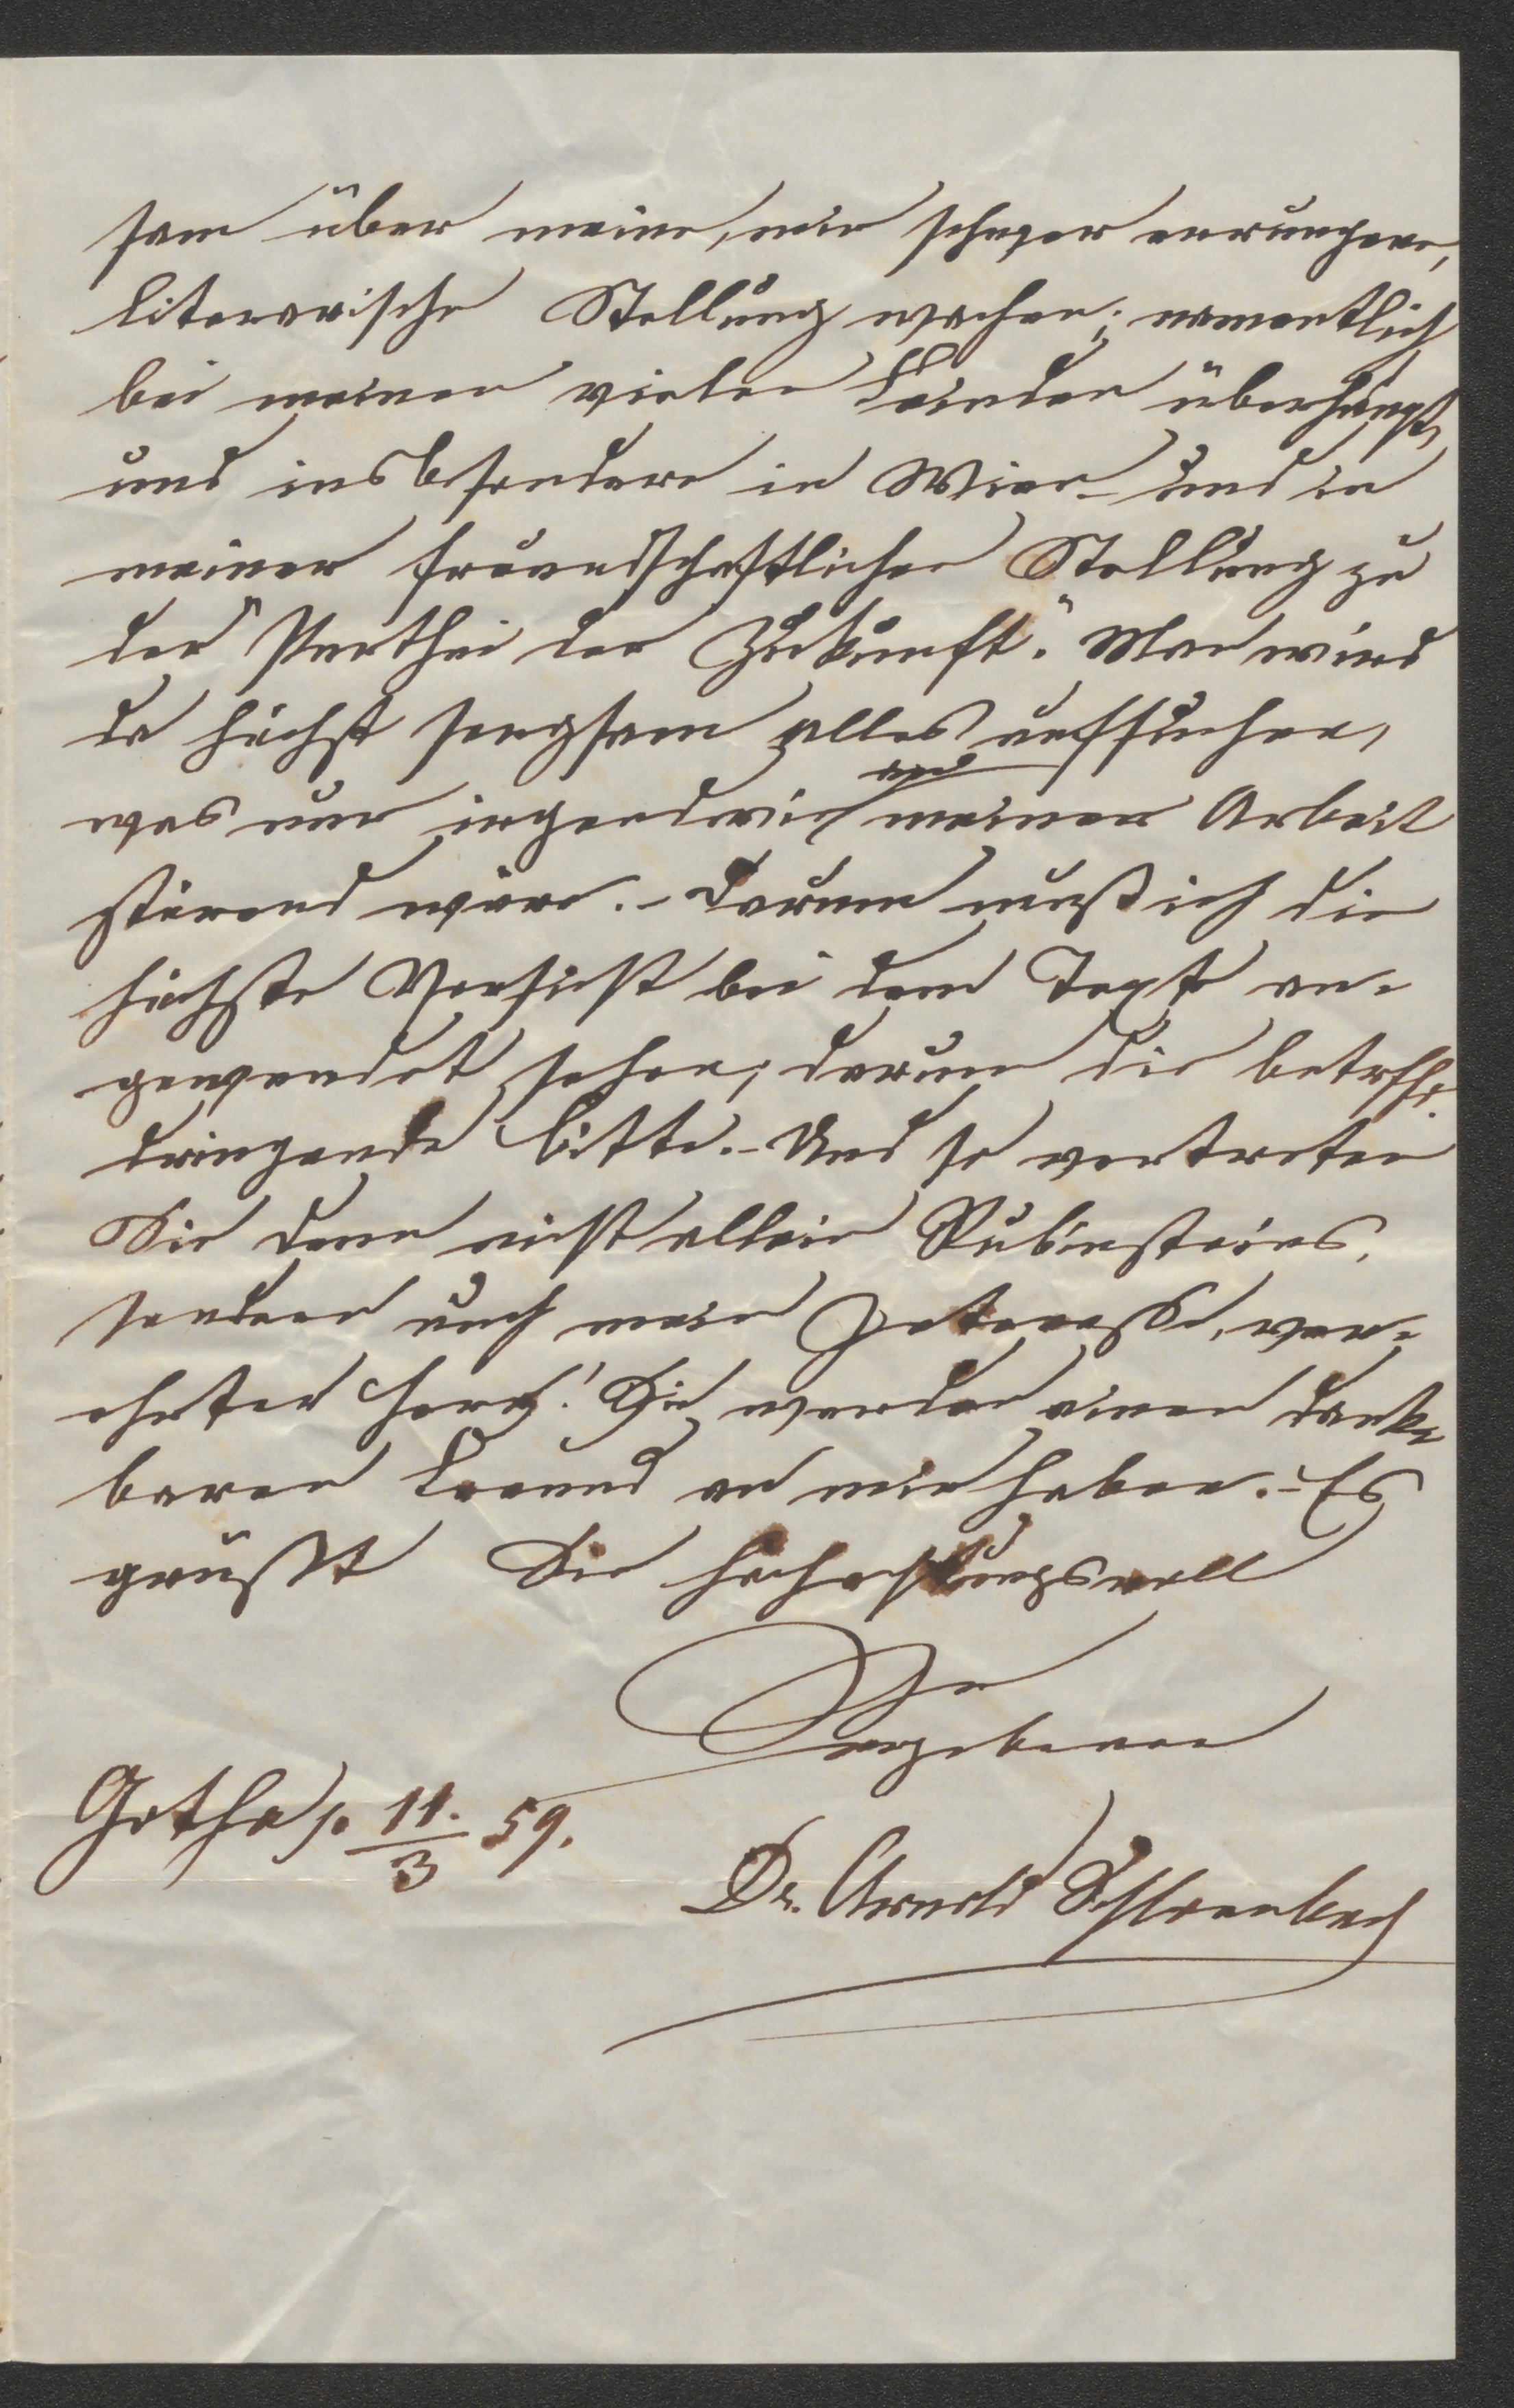 sam über meine, mir schwer errungene,
literarische Stellung wachen; namentlich
bei meinen vielen Feinden überhaupt,
und insbesondere in Wien – und in
meiner freundschaftlichen Stellung zu
der "Parthei der Zukunft". Man wird
da höchst sorgsam alles aufsuchen,
was nur irgendwie an meiner Arbeit
störend wäre. – Darum muß ich die
höchste Vorsicht bei dem Texte an-
gewendet sehen; darum die betreff.
dringende Bitte. – Und so vertreten
Sie denn nicht allein Rubinsteins,
sondern auch mein Interesse, ver-
ehrter Herr! Sie werden einen dank-
baren Freund an mir haben. – Es
grüßt Sie hochachtungsvoll
Ihr
ergebener
Gotha, 11./3 59.
Dr. Arnold Schloenbach